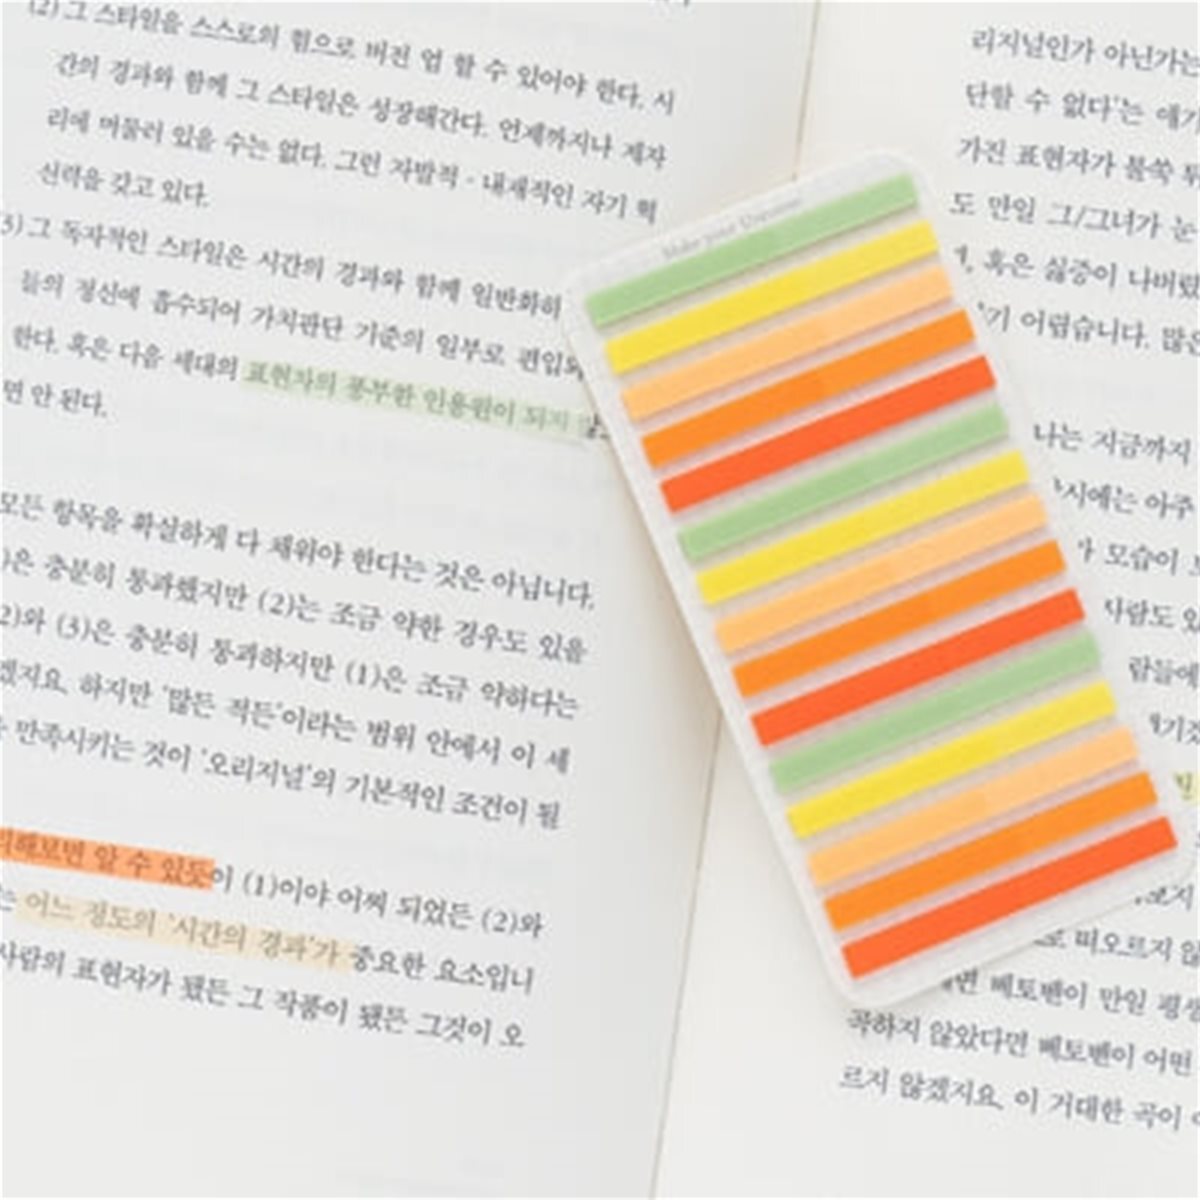 (2) 그 스타일을 스스로의 힘으로 버전 업 할 수 있어야 한다. 시
간의 경과와 함께 그 스타일은 성장해간다. 언제까지나 제자
리에 머물러 있을 수는 없다. 그런 자발적·내재적인 자기 혁
신력을 갖고 있다.
3) 그 독자적인 스타일은 시간의 경과와 함께 일반화히
들의 정신에 흡수되어 가치판단 기준의 일부로 편입되
한다. 혹은 다음 세대의 표현자의 풍부한 인용원이 되지 않
면 안 된다.
모든 항목을 확실하게 다 채워야 한다는 것은 아닙니다.
)은 충분히 통과했지만 (2)는 조금 약한 경우도 있을
2)와 (3)은 충분히 통과하지만 (1)은 조금 약하다는
겠지요. 하지만 '많든 적든'이라는 범위 안에서 이 세
만족시키는 것이 '오리지널'의 기본적인 조건이 될
리해보면 알 수 있듯이 (1)이야 어찌 되었든 (2)와
는 어느 정도의 '시간의 경과'가 중요한 요소입니
사람의 표현자가 됐든 그 작품이 됐든 그것이 오
Make your
리지널인가 아닌가는
단할 수 없다'는 얘기
가진 표현자가 불쑥
도 만일 그/그녀가 눈
혹은 싫증이 나버렸
기 어렵습니다. 많은
나는 지금까지
시에는 아주
모습이
사람도 있
람들에
빈
떠오르지 않
면 베토벤이 만일 평생
곡하지 않았다면 베토벤이 어떤
르지 않겠지요. 이 거대한 곡이